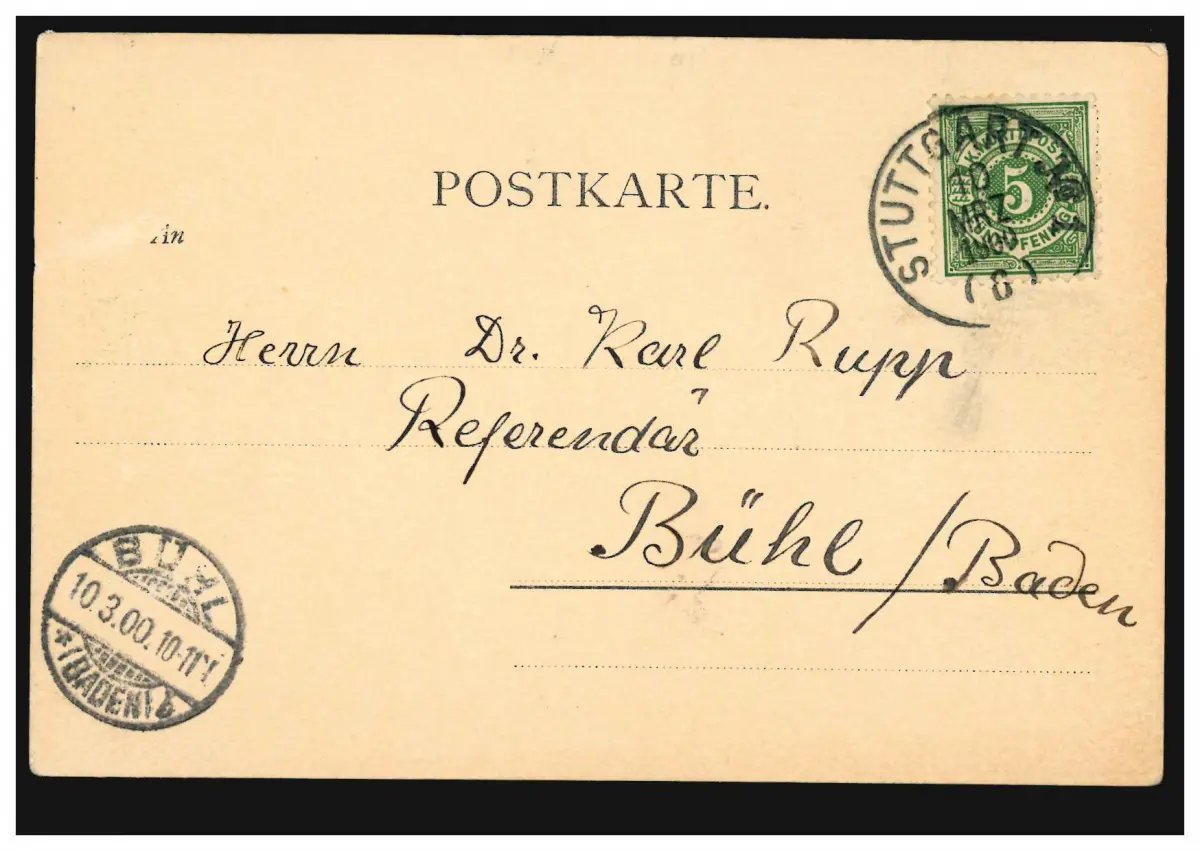 POSTKARTE.
An
STUTTGART No 1
10
MRZ
1900
5
Herrn Dr. Karl Rupp
Referendär
Bühl / Baden
BÜHL
10.3.00.10-11V
*(BADEN) b